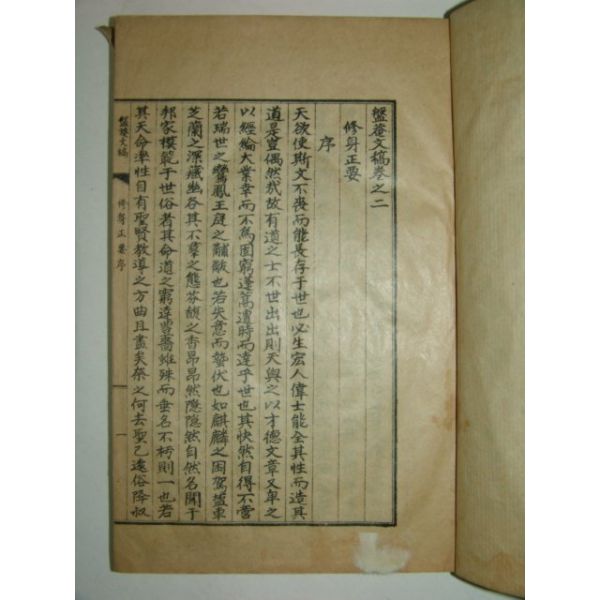 盤菴文稿卷之二
修身正要
序
天欲使斯文不喪而能長存于世也必生宏人偉士能全其性而造其
道是豈偶然哉故有道之士不世出出則天與之以才德文章又卑之
以經綸大業幸而不爲困窮蓬蒿遭時而達乎世也其快然自得不啻
若瑞世之鸞鳳王庭之黼黻也若失意而蟄伏也如麒麟之困駕鹽車
芝蘭之深藏幽谷其不摹之態芬馥之香昂昂然隱隱然自然名聞于
邦家模範于世俗者其命道之窮達豊嗇雖殊而垂名不朽則一也若
其天命率性自有聖賢教導之方曲且盡矣柰之何去聖已遠俗降叔
盤菴文稿
修身正要序
一